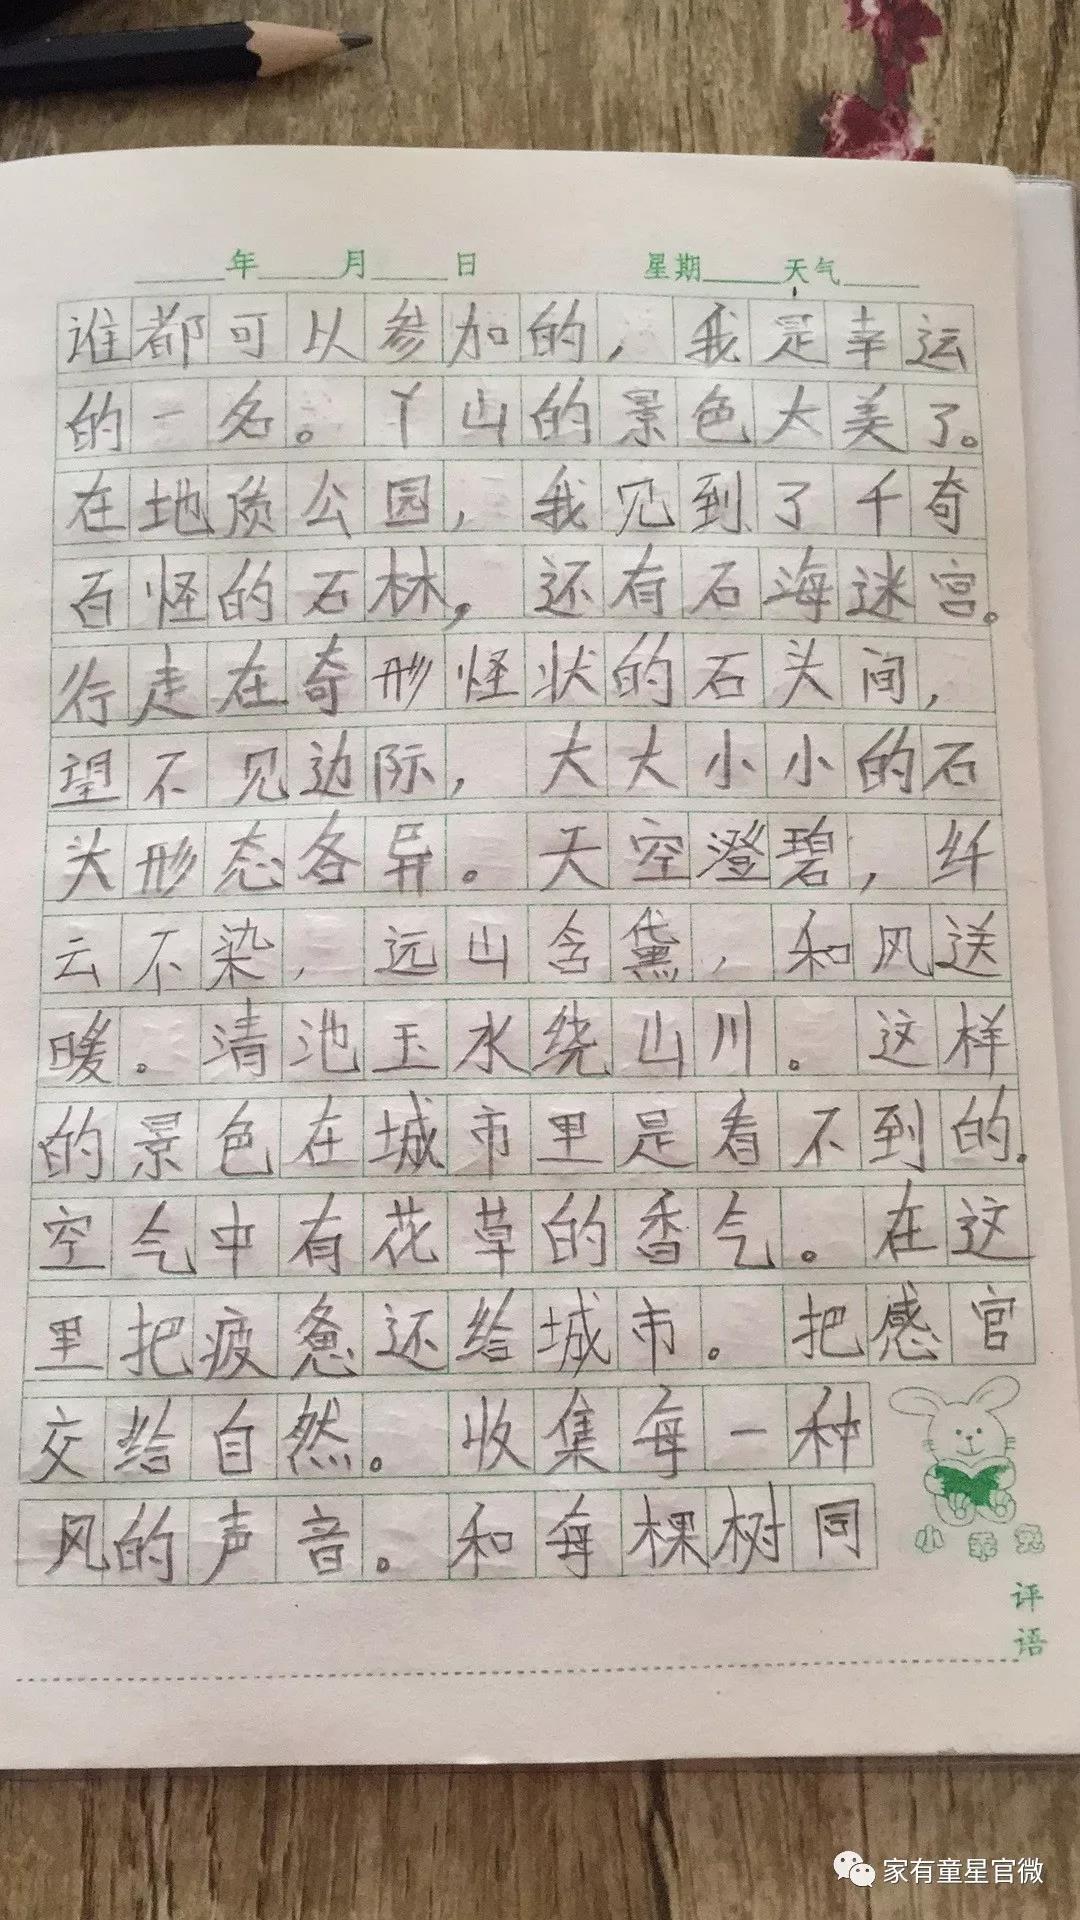 年 月 日 星期 天气
谁都可以参加的，我是幸运
的一名。丫山的景色太美了。
在地质公园，我见到了千奇
百怪的石林，还有石海迷宫。
行走在奇形怪状的石头间，
望不见边际，大大小小的石
头形态各异。天空澄碧，纤
云不染，远山含黛，和风送
暖。清池玉水绕山川。这样
的景色在城市里是看不到的。
空气中有花草的香气。在这
里把疲惫还给城市。把感官
交给自然。收集每一种
风的声音。和每棵树同
小乖兔
评
语
家有童星官微